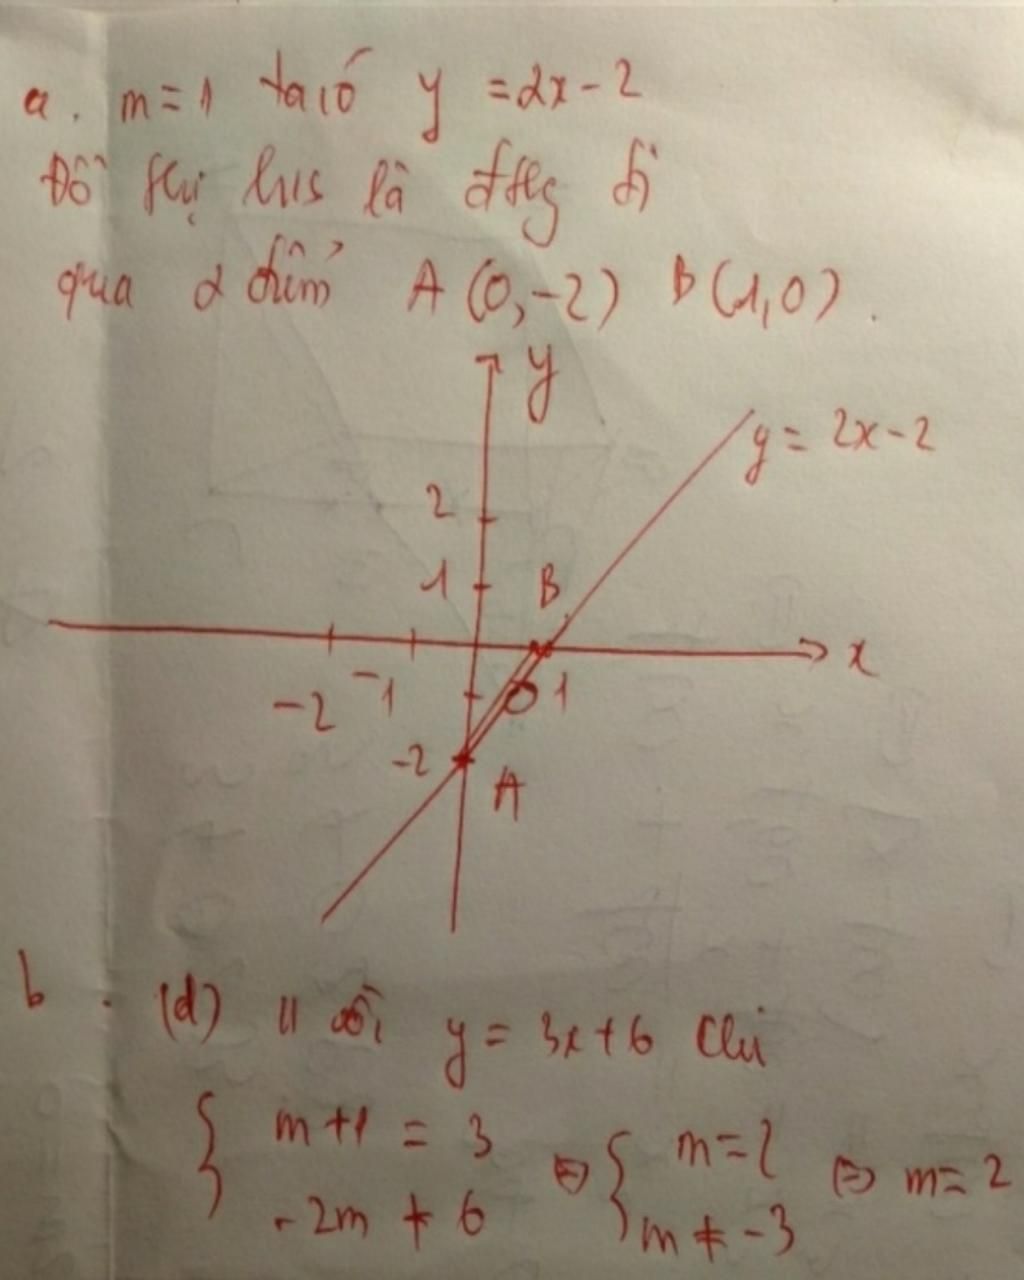 a. m=1 ta có y = 2x-2
Đồ thị hs là đthg đi
qua 2 điểm A(0,-2) B(1,0).
y
y = 2x-2
2
1
B
x
-2 -1 O 1
-2
A
b. (d) // với y = 3x+6 khi
{ m+1 = 3 ⇔ { m=2 ⇔ m=2
-2m ≠ 6 m ≠ -3